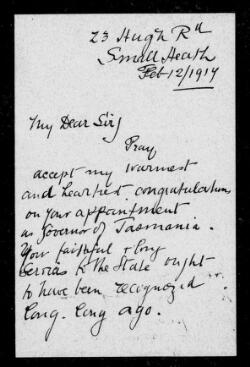 23 Hugh Rd
Small Heath
Feb 12/1917
My Dear Sir
Pray
accept my warmest
and heartiest congratulations
on your appointment
as Governor of Tasmania.
Your faithful & long
services to the State ought
to have been recognized
long. long ago.